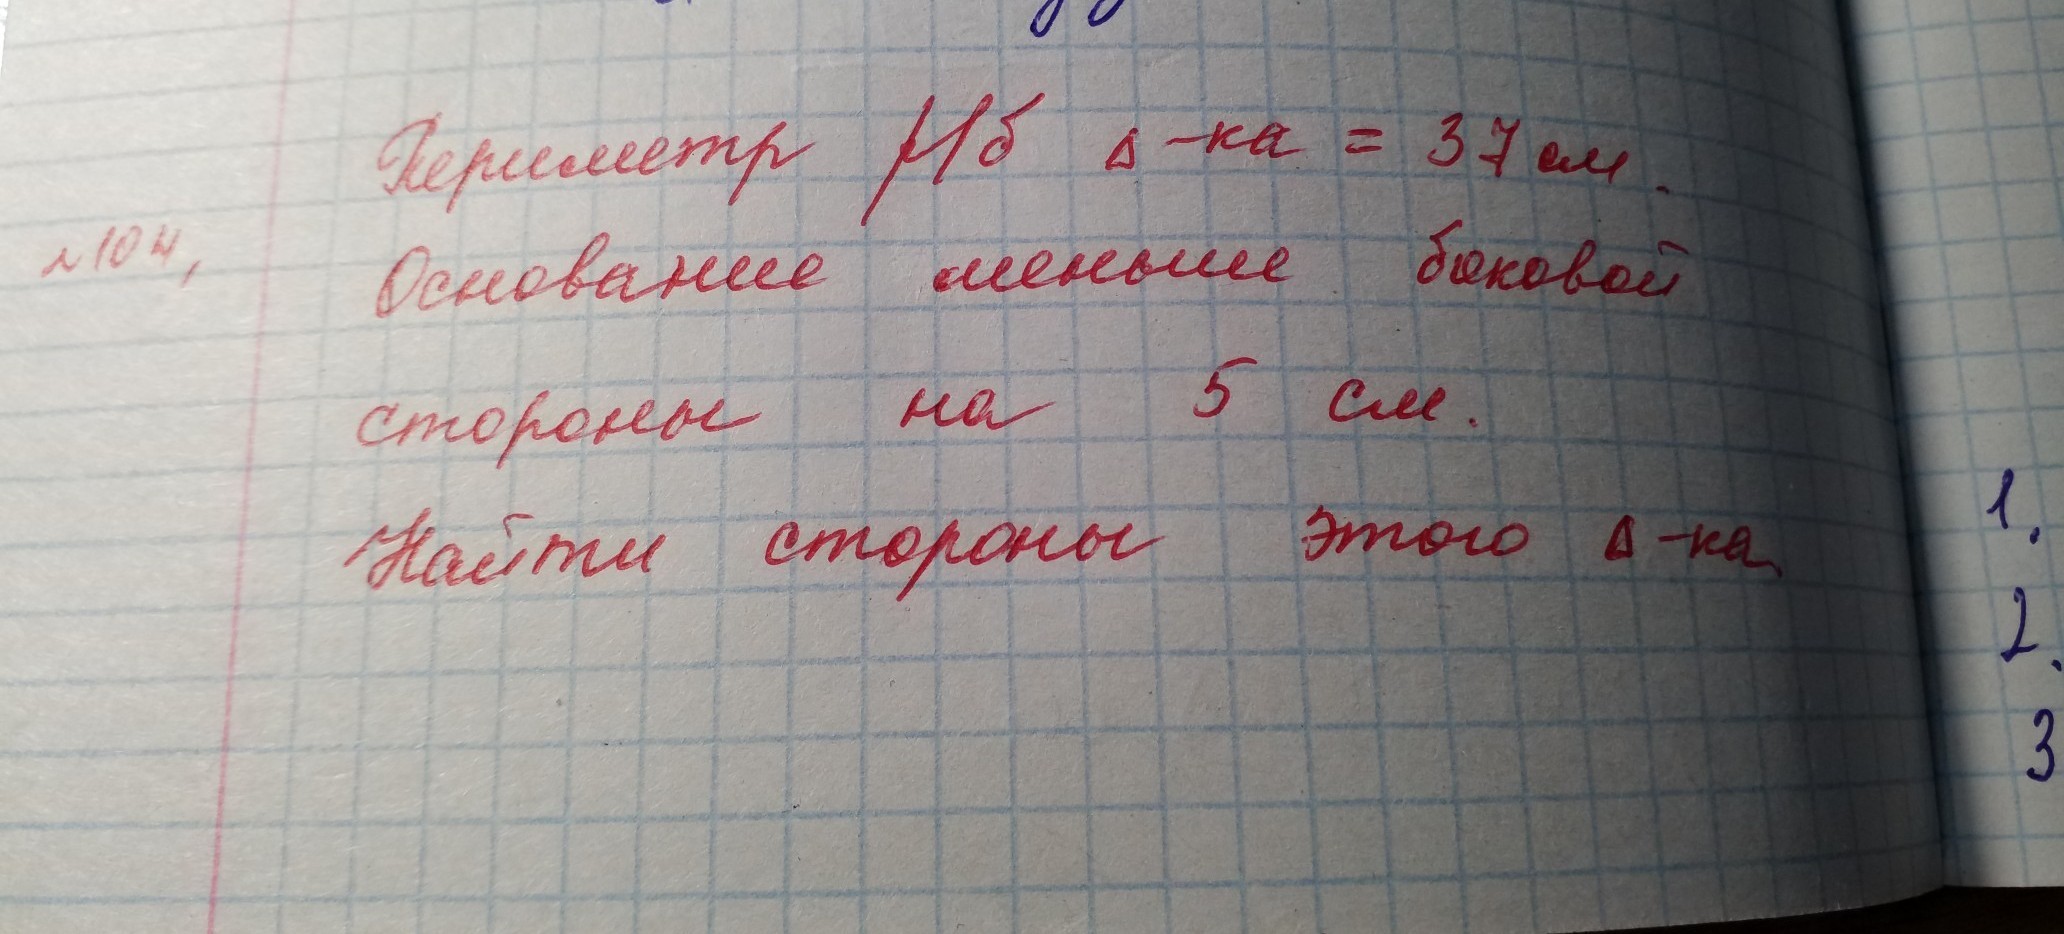 Периметр р/б Δ-ка = 37 см.
№104,
Основание меньше боковой
стороны на 5 см.
Найти стороны этого Δ-ка
1.
2.
3